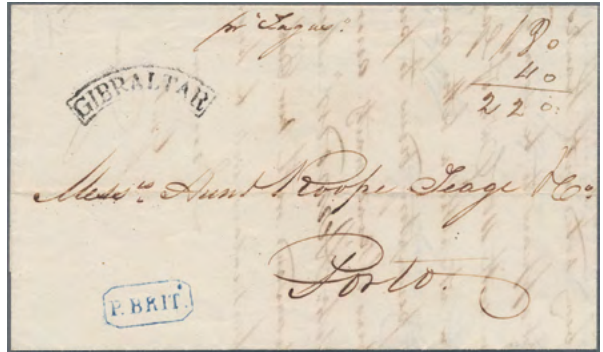 pr Tagus.
180
40
220
GIBRALTAR
Messrs Hunt Roope Teage & Co
Porto.
P. BRIT.